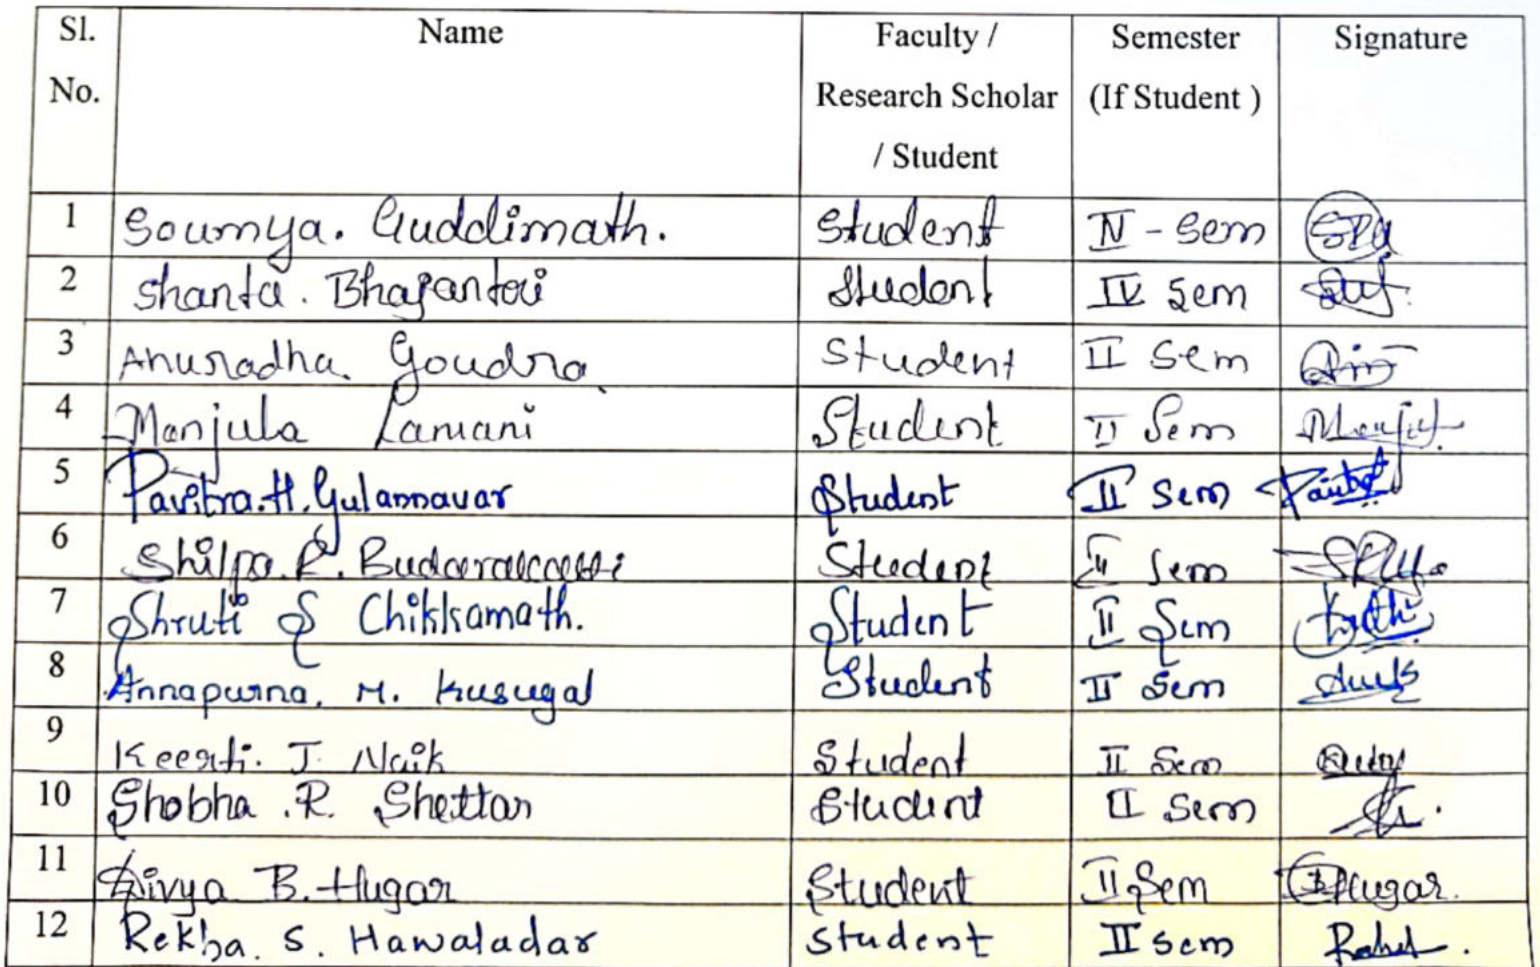 Sl. No. Name Faculty / Research Scholar / Student Semester (If Student ) Signature
1 Soumya. Guddimath. Student IV - Sem
2 Shanta. Bhajantri Student IV Sem
3 Anuradha. Goudra Student II Sem
4 Manjula Lamani Student II Sem
5 Pavitra.H.Gulannavar Student II Sem
6 Shilpa.R. Student II Sem
7 Shruti S Chikkamath. Student II Sem
8 Annapurna. M. Kusugal Student II Sem
9 Keerti. J. Naik Student II Sem
10 Shobha .R. Shettar Student II Sem
11 Divya B. Hugar Student II Sem Hugar.
12 Rekha. S. Hawaladar Student II Sem